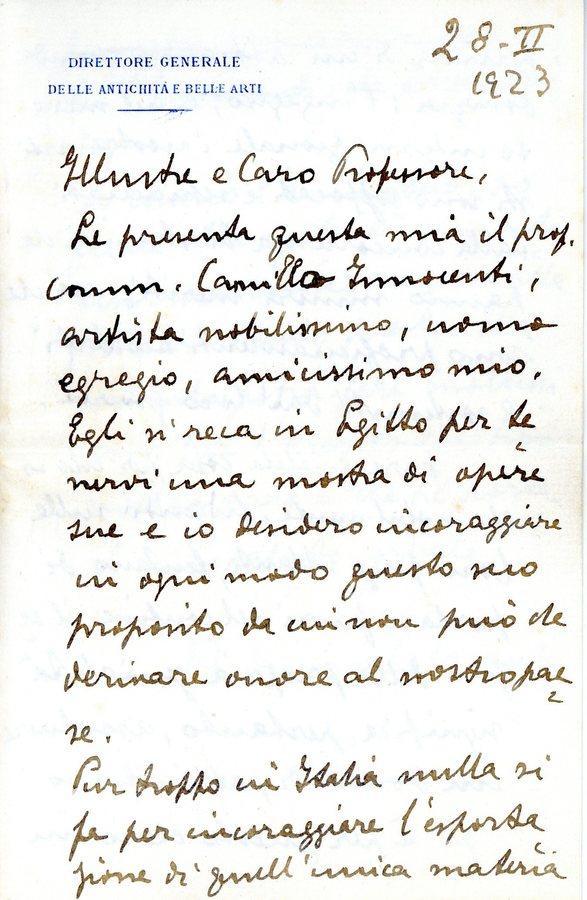 28-II
1923
DIRETTORE GENERALE
DELLE ANTICHITÀ E BELLE ARTI
Illustre e Caro Professore,
Le presenta questa mia il prof.
comm. Camillo Innocenti,
artista nobilissimo, uomo
egregio, amicissimo mio.
Egli si reca in Egitto per te
nervi una mostra di opere
sue e io desidero incoraggiare
in ogni modo questo suo
proposito da cui non può che
derivare onore al nostro pae=
se.
Pur troppo in Italia nulla si
fa per incoraggiare l'esporta
zione di quell'unica materia